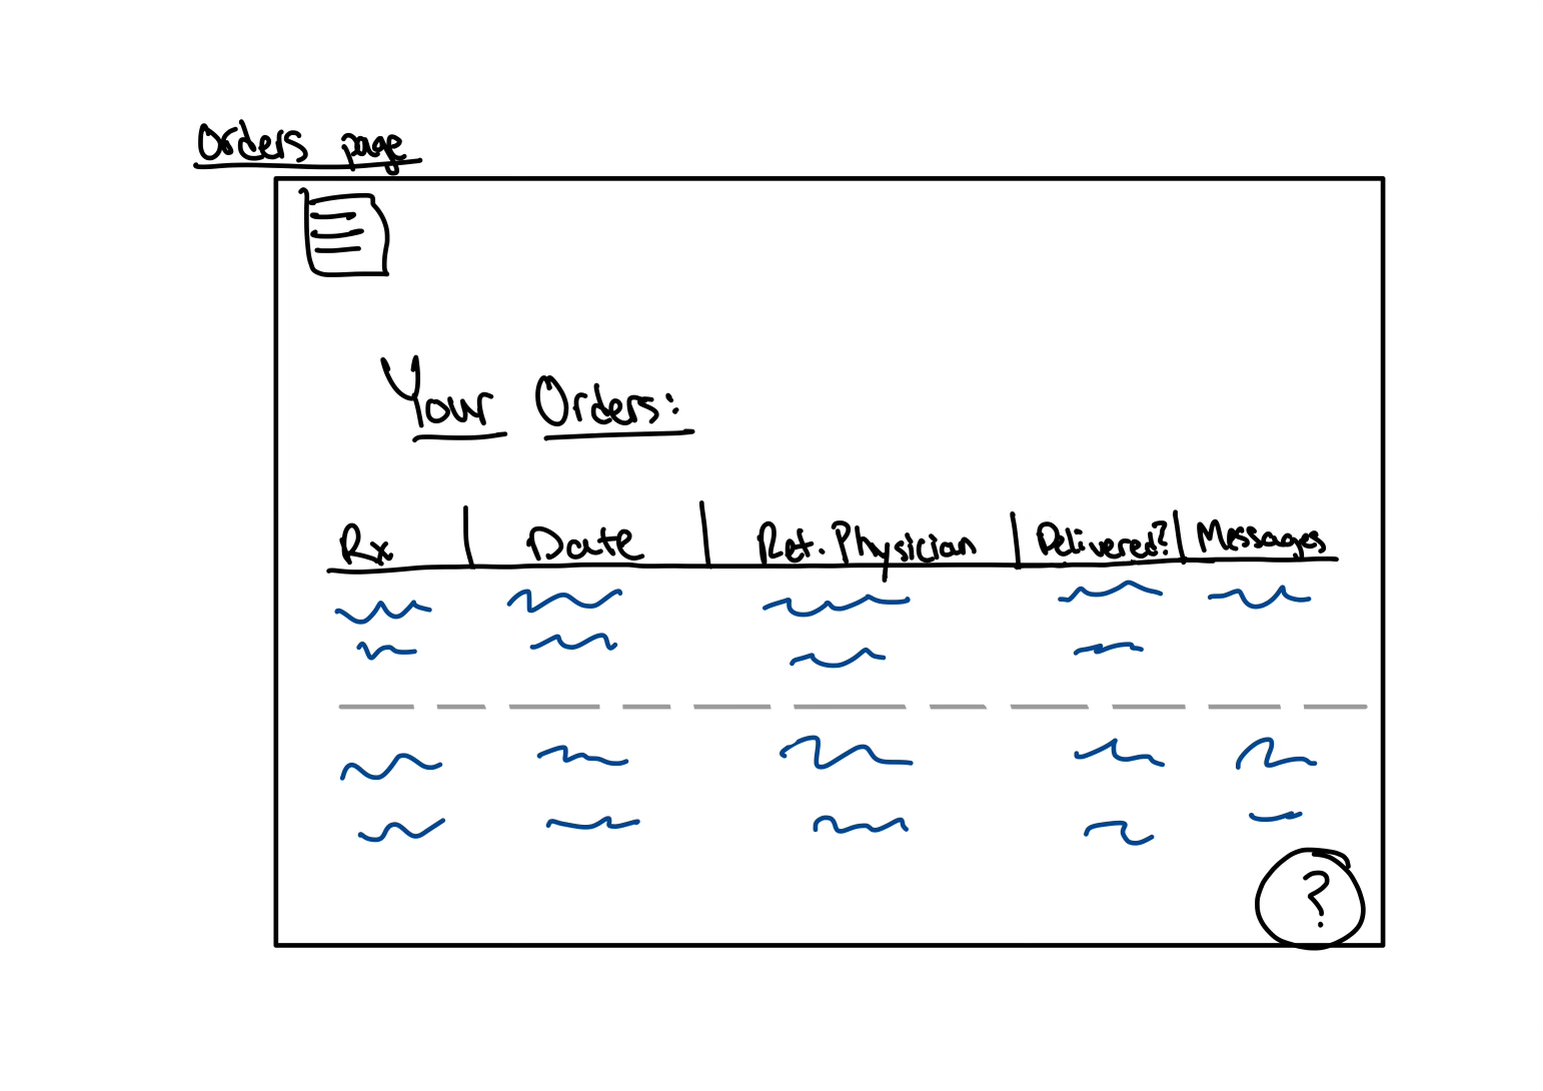 Orders page
Your Orders:
Rx | Date | Ref. Physician | Delivered? | Messages
?